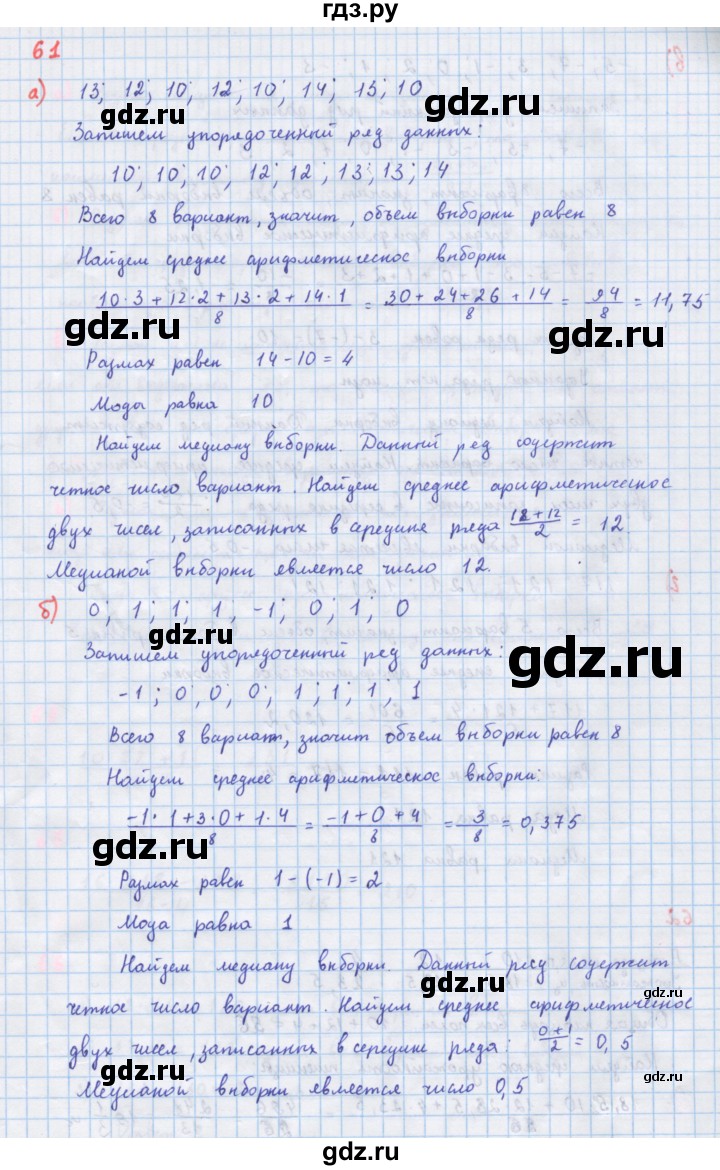 гдз.ру
61
а) 13; 12; 10; 12; 10; 14; 13; 10
gdz.ru gdz.ru
Запишем упорядоченный ряд данных:
10; 10; 10; 12; 12; 13; 13; 14
Всего 8 вариант, значит, объем выборки равен 8
gdz.ru
Найдем среднее арифметическое выборки
10·3+12·2+13·2+14·1/8 = 30+24+26+14/8 = 94/8 = 11,75
gdz.ru
Размах равен 14-10=4
gdz.ru
Моды равна 10
Найдем медиану выборки. Данный ряд содержит
четное число вариант. Найдем среднее арифметическое
gdz.ru
двух чисел, записанных в середине ряда 12+12/2 = 12.
gdz.ru
Медианой выборки является число 12.
б) 0; 1; 1; 1; -1; 0; 1; 0
gdz.ru
Запишем упорядоченный ряд данных:
gdz.ru
-1; 0; 0; 0; 1; 1; 1; 1
Всего 8 вариант, значит объем выборки равен 8
gdz.ru
Найдем среднее арифметическое выборки:
-1·1+3·0+1·4/8 = -1+0+4/8 = 3/8 = 0,375
gdz.ru gdz.ru
Размах равен 1-(-1)=2
Мода равна 1
Найдем медиану выборки. Данный ряд содержит
gdz.ru
gdz.ru
четное число вариант. Найдем среднее арифметическое
двух чисел, записанных в середине ряда: 0+1/2 = 0,5
gdz.ru
Медианой выборки является число 0,5
gdz.ru
gdz.ru
gdz.ru